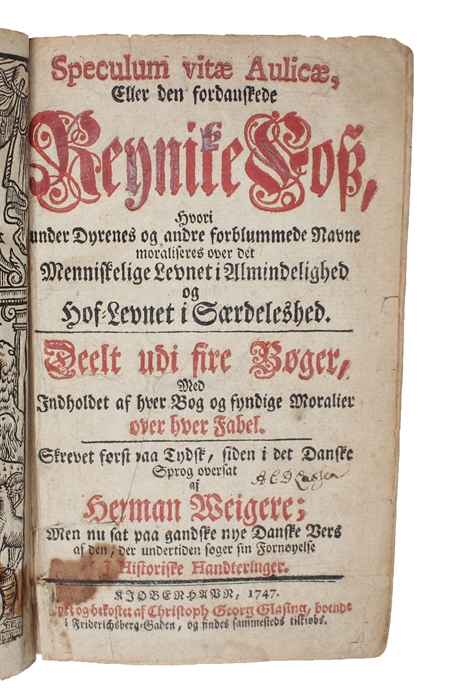 Speculum vitæ Aulicæ,
Eller den fordanskede
Reynike Voß,
Hvori
under Dyrenes og andre forblummede Navne
moraliseres over det
Menniskelige Levnet i Almindelighed
og
Hof-Levnet i Særdeleshed.
Deelt udi fire Bøger,
Med
Indholdet af hver Bog og fyndige Moralier
over hver Fabel.
Skrevet først paa Tydsk, siden i det Danske
Sprog oversat
af
Herman Weigere;
Men nu sat paa gandske nye Danske Vers
af den, der undertiden søger sin Fornøyelse
I Historiske Handteringer.
KIØBENHAVN, 1747.
og bekostet af Christoph Georg Glasing, boende
i Friderichsberg-Gaden, og findes sammesteds tilkiøbs.